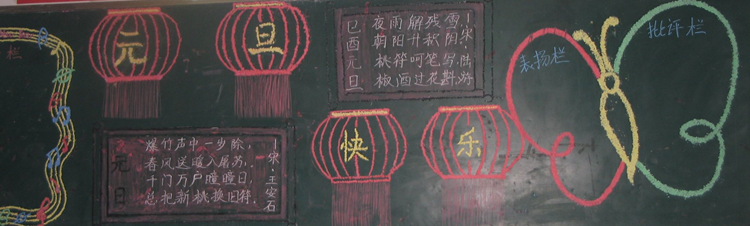 栏
元旦
快乐
己酉元旦
夜雨解残雪
朝阳开积阴
桃符呵笔写
椒酒过花斟
—宋·陆游
元日
爆竹声中一岁除，
春风送暖入屠苏。
千门万户曈曈日，
总把新桃换旧符。
—宋·王安石
表扬栏
批评栏